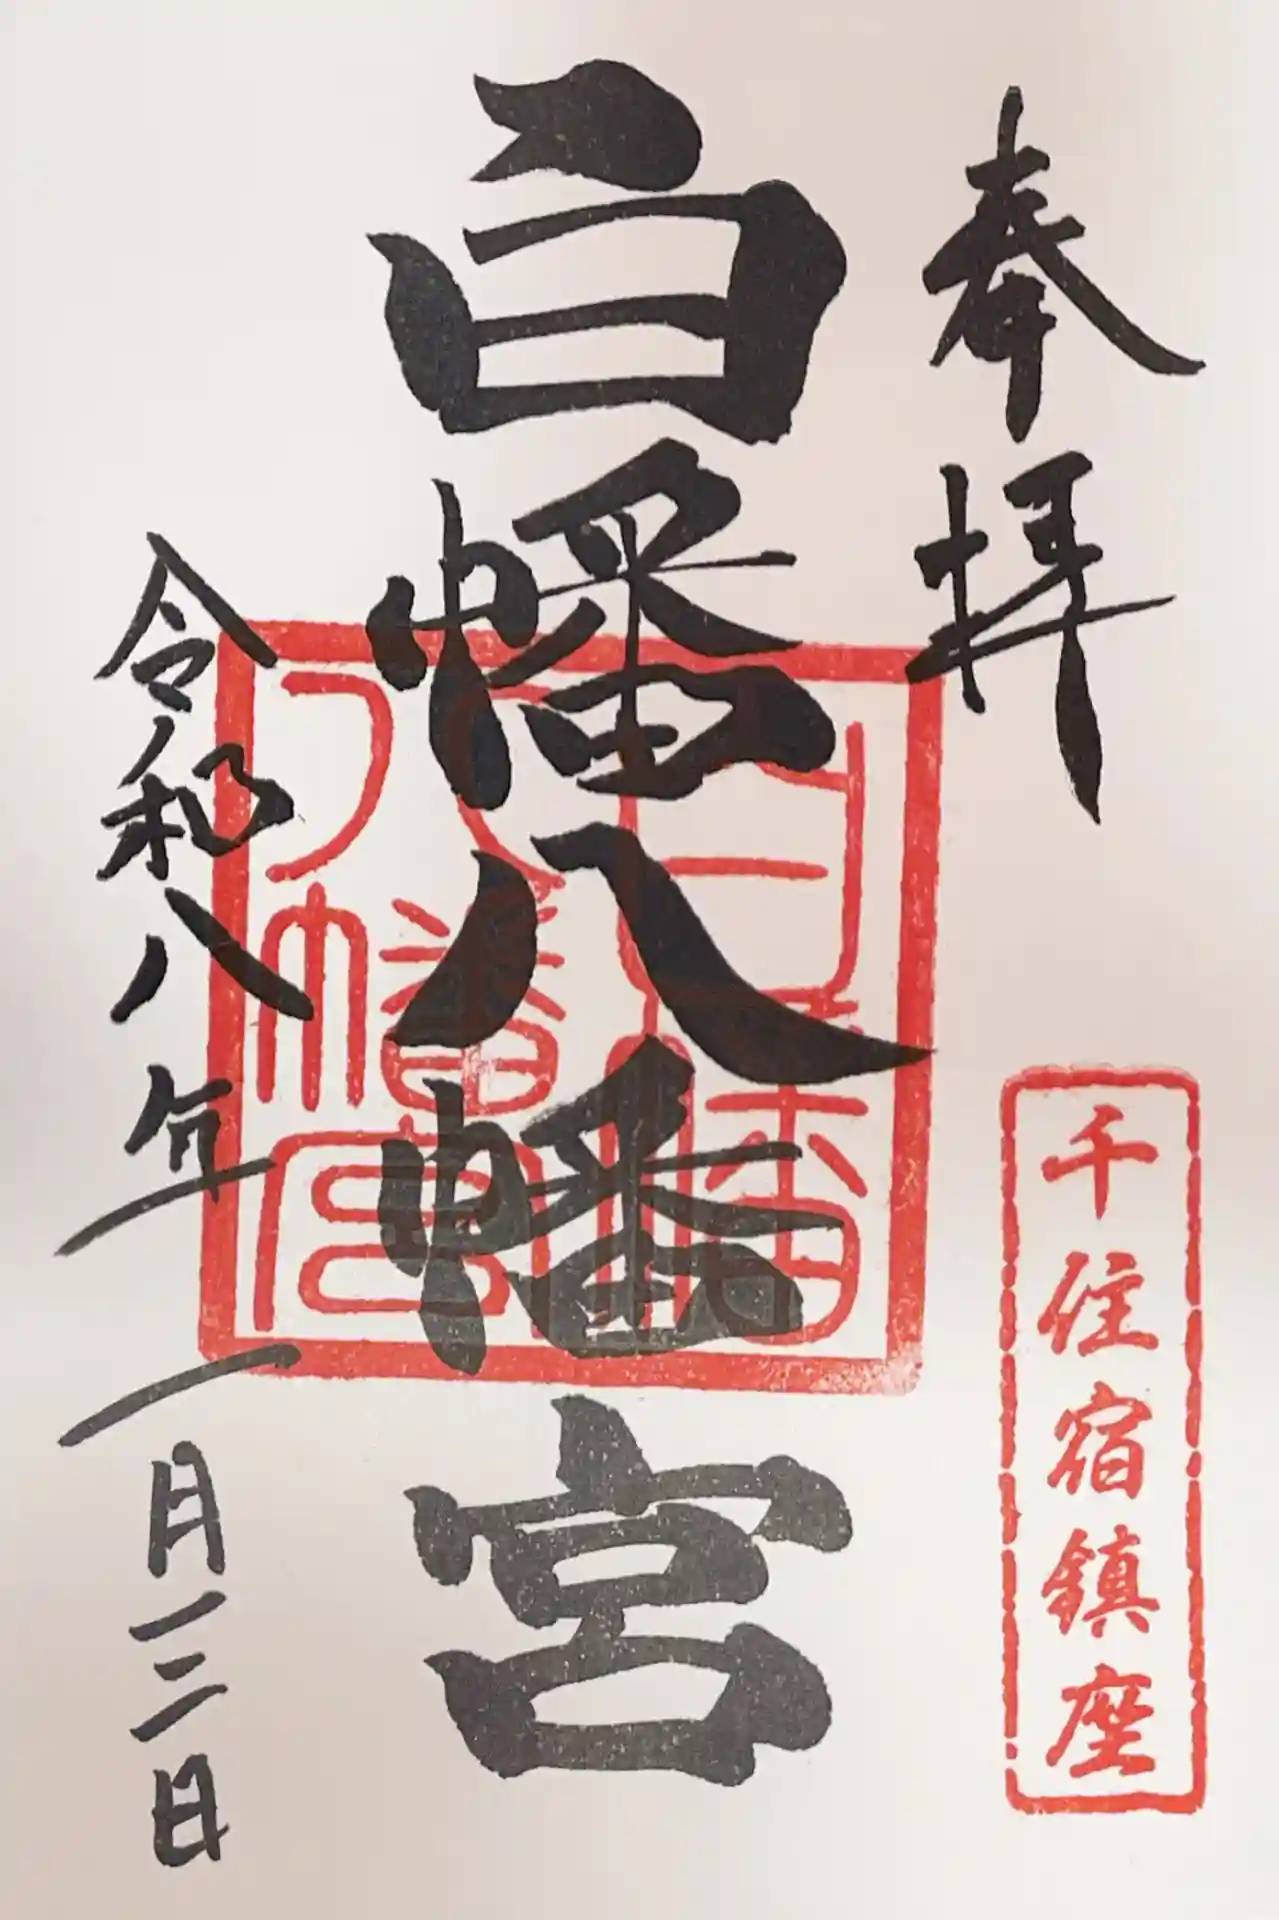 奉拝
千住宿鎮座
白幡八幡宮
白幡
八幡宮
令和八年一月三日